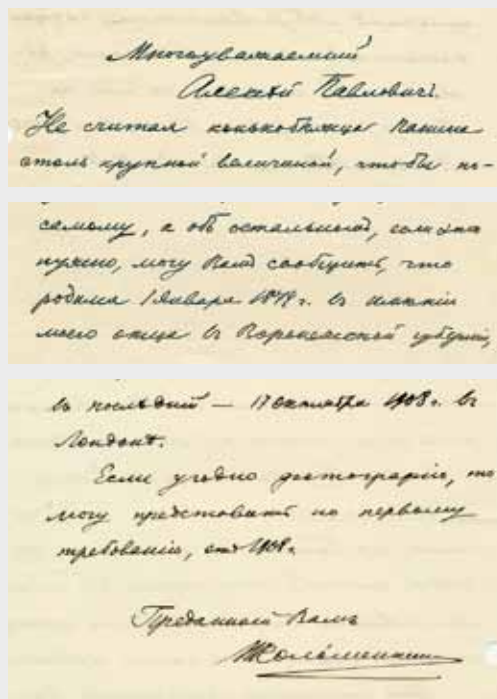 Многоуважаемый
Алексей Павловичъ.
Не считая конькобѣжца Панина
столь крупной величиной, чтобы по-
самому, а объ остальномъ, если это
нужно, могу Вамъ сообщить, что
родился 1 Января 1872 г. въ имѣніи
моего отца въ Воронежской губерніи,
въ послѣдній — 17 октября 1908 г. въ
Лондонѣ.
Если угодно фотографію, то
могу представить по первому
требованію, отъ 1908 г.
Преданный Вамъ
НКоломенкин